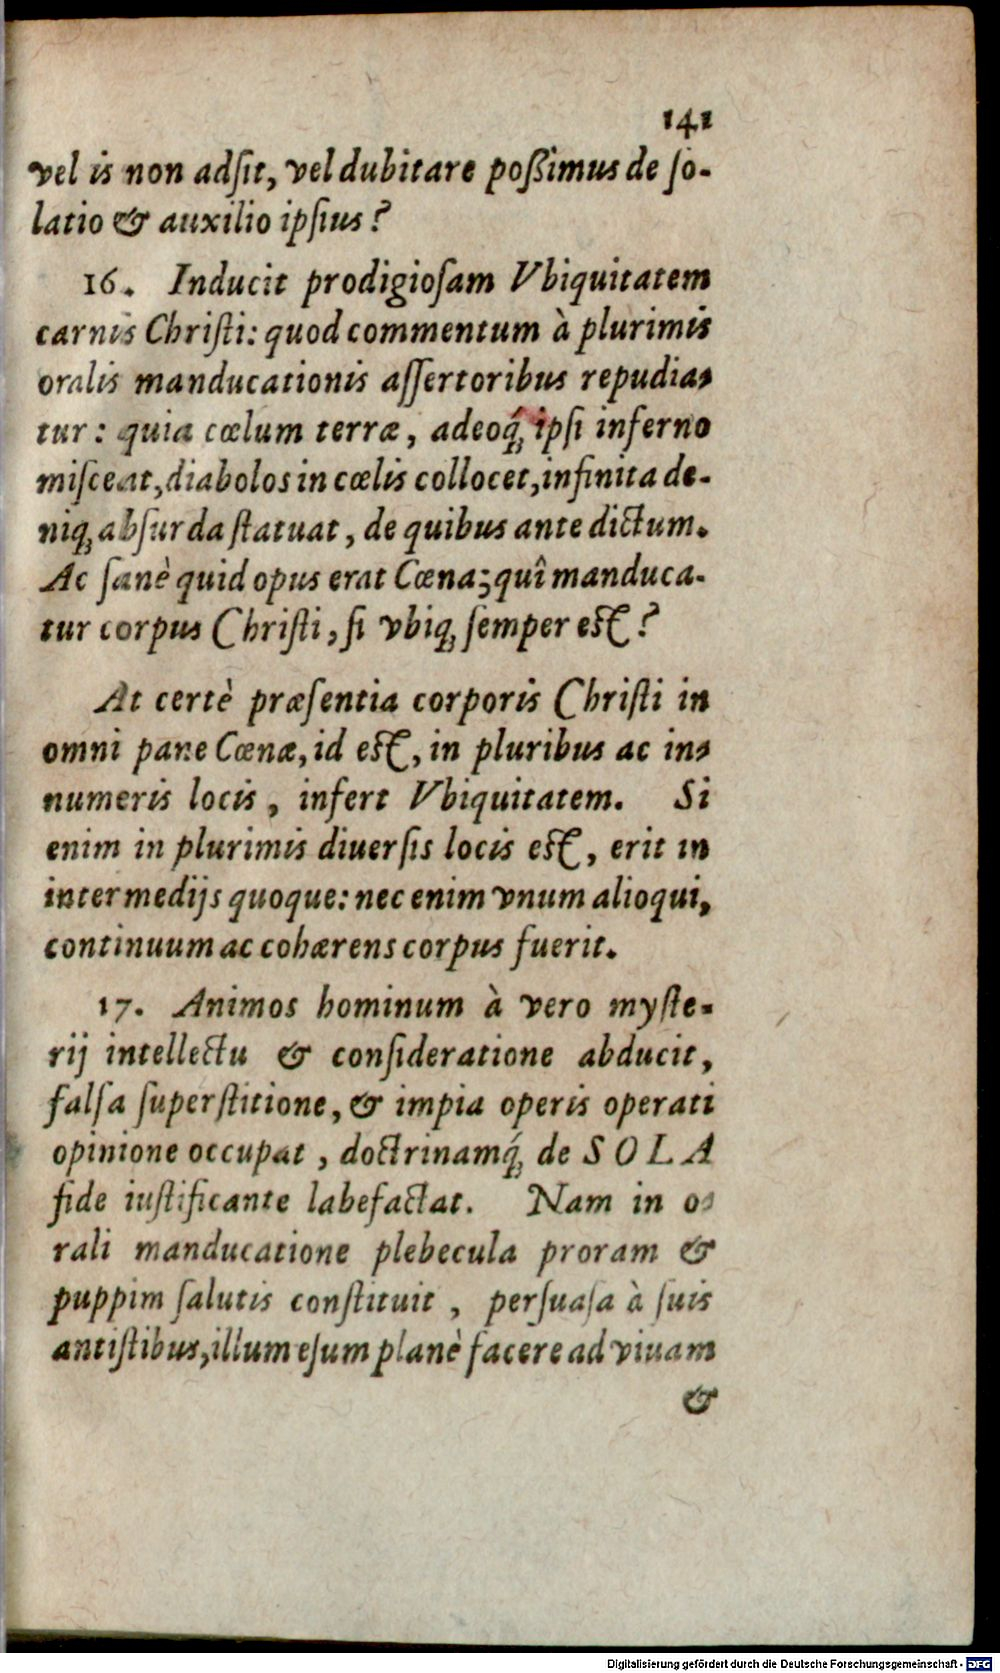 141
vel is non adſit, vel dubitare poßimus de ſo-
latio & auxilio ipſius?
16. Inducit prodigioſam Vbiquitatem
carnis Chriſti: quod commentum à plurimis
oralis manducationis aſſertoribus repudia-
tur: quia cœlum terræ, adeoq́; ipſi inferno
miſceat, diabolos in cœlis collocet, infinita de-
niq; abſurda ſtatuat, de quibus ante dictum.
Ac ſanè quid opus erat Cœna; quî manduca-
tur corpus Chriſti, ſi vbiq; ſemper eſt?
At certè præſentia corporis Chriſti in
omni pane Cœnæ, id eſt, in pluribus ac in-
numeris locis, infert Vbiquitatem. Si
enim in plurimis diuerſis locis eſt, erit in
intermedijs quoque: nec enim vnum alioqui,
continuum ac cohærens corpus fuerit.
17. Animos hominum à vero myſte-
rij intellectu & conſideratione abducit,
falſa superſtitione, & impia operis operati
opinione occupat, doctrinamq́; de SOLA
fide iuſtificante labefactat. Nam in o-
rali manducatione plebecula proram &
puppim ſalutis conſtituit, perſuaſa à ſuis
antiſtibus, illum eſum planè facere ad viuam
&
Digitalisierung gefördert durch die Deutsche Forschungsgemeinschaft - DFG